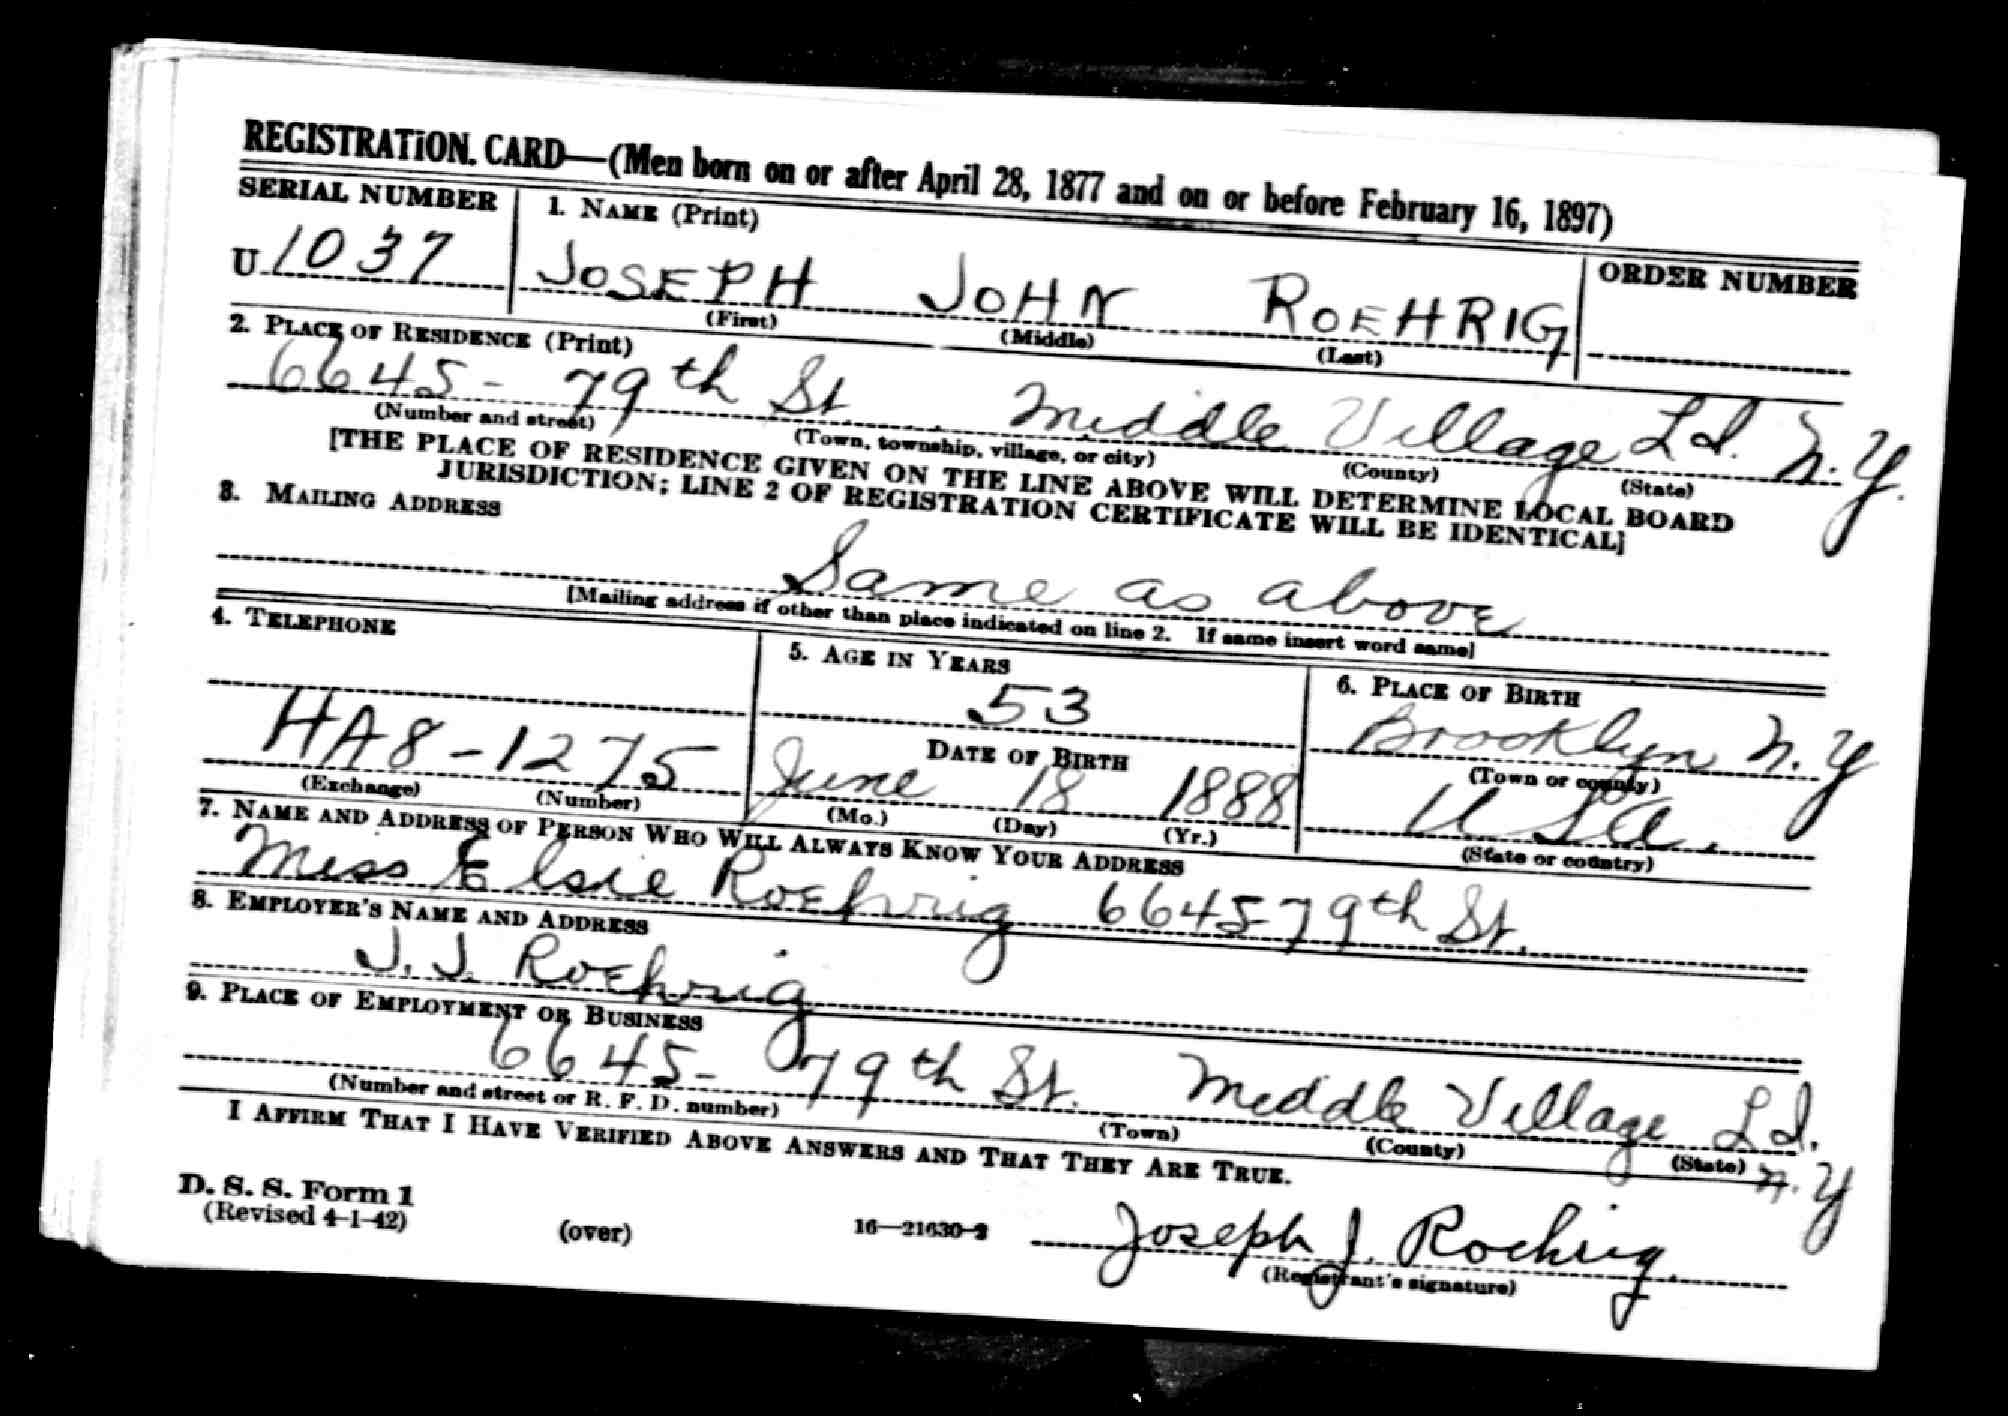 REGISTRATION CARD—(Men born on or after April 28, 1877 and on or before February 16, 1897)
SERIAL NUMBER
1. NAME (Print)
ORDER NUMBER
U 1037
JOSEPH JOHN ROEHRIG
(First) (Middle) (Last)
2. PLACE OF RESIDENCE (Print)
6645- 79th St Middle Village L.I. N.Y.
(Number and street) (Town, township, village, or city) (County) (State)
[THE PLACE OF RESIDENCE GIVEN ON THE LINE ABOVE WILL DETERMINE LOCAL BOARD
JURISDICTION; LINE 2 OF REGISTRATION CERTIFICATE WILL BE IDENTICAL]
3. MAILING ADDRESS
Same as above
[Mailing address if other than place indicated on line 2. If same insert word same]
4. TELEPHONE
HA8-1275
(Exchange) (Number)
5. AGE IN YEARS
53
DATE OF BIRTH
June 18 1888
(Mo.) (Day) (Yr.)
6. PLACE OF BIRTH
Brooklyn N.Y
(Town or county)
U S A.
(State or country)
7. NAME AND ADDRESS OF PERSON WHO WILL ALWAYS KNOW YOUR ADDRESS
Miss Elsie Roehrig 6645-79th St.
8. EMPLOYER'S NAME AND ADDRESS
J. J. Roehrig
9. PLACE OF EMPLOYMENT OR BUSINESS
6645- 79th St. Middle Village L.I. N.Y
(Number and street or R. F. D. number) (Town) (County) (State)
I AFFIRM THAT I HAVE VERIFIED ABOVE ANSWERS AND THAT THEY ARE TRUE.
D. S. S. Form 1
(Revised 4-1-42) (over) 16—21630-2
Joseph J. Roehrig
(Registrant's signature)